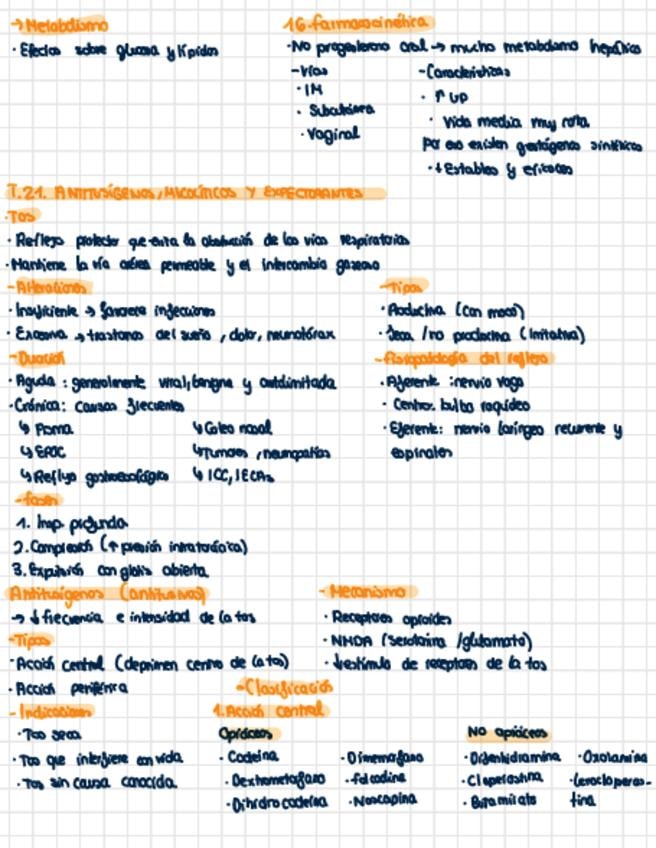 → Metabolismo
· Efectos sobre glucosa y lípidos
16. Farmacocinética
· No progesterona oral → mucho metabolismo hepático
- Vías
· IM
· Subcutánea
· Vaginal
- Características
· ↑ UP
· Vida media muy corta
por eso existen gestágenos sintéticos
· + Estables y eficaces
T.21. ANTITUSÍGENOS, MUCOLÍTICOS Y EXPECTORANTES
· Tos
· Reflejo protector que evita la obstrucción de las vías respiratorias
· Mantiene la vía aérea permeable y el intercambio gaseoso
- Alteraciones
· Insuficiente → favorece infecciones
· Excesiva → trastornos del sueño, dolor, neumotórax
- Tipos
· Productiva (con moco)
· Seca / no productiva (irritativa)
- Duración
· Aguda: generalmente viral, benigna y autolimitada
· Crónica: causas frecuentes
↳ Asma
↳ EPOC
↳ Reflujo gastroesofágico
↳ Goteo nasal
↳ Tumores, neumopatías
↳ ICC, IECAs
- Fisiopatología del reflejo
· Aferente: nervio vago
· Centro: bulbo raquídeo
· Eferente: nervio laríngeo recurrente y
espinales
- Fases
1. Insp. profunda
2. Compresión (↑ presión intratorácica)
3. Expulsión con glotis abierta
Antitusígenos (antitusivos)
→ ↓ frecuencia e intensidad de la tos
- Tipos
· Acción central (deprimen centro de la tos)
· Acción periférica
- Mecanismo
· Receptores opioides
· NMDA (serotonina / glutamato)
· ↓ estímulo de receptores de la tos
- Indicaciones
· Tos seca
· Tos que interfiere con vida
· Tos sin causa conocida
- Clasificación
1. Acción central
Opiáceos
· Codeína
· Dextrometorfano
· Dihidrocodeína
· Dimemorfano
· Folcodina
· Noscapina
No opiáceos
· Difenhidramina
· Cloperastina
· Butamirato
· Oxolamina
· Levocloperas-
tina